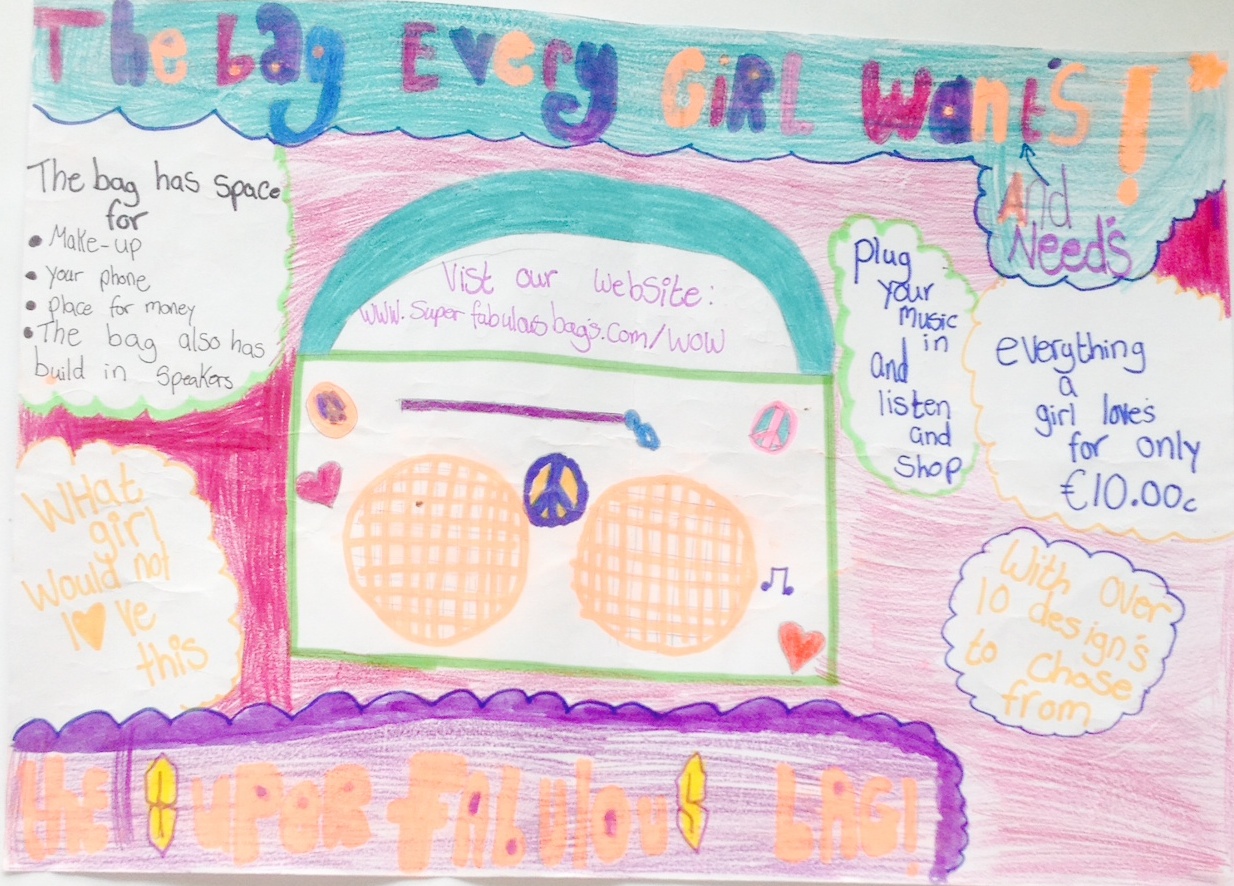 The bag Every GiRL Want'S!
And
Need's
The bag has space
for
• Make-up
• your phone
• place for money
• The bag also has
build in speakers
Vist our website:
www.superfabulousbag's.com/wow
plug
your
Music
in
and
listen
and
shop
everything
a
girl love's
for only
€10.00c
WHat
girl
Would not
l♥ve
this
With over
10 design's
to chose
from
the SupeR FabulouS bAG!